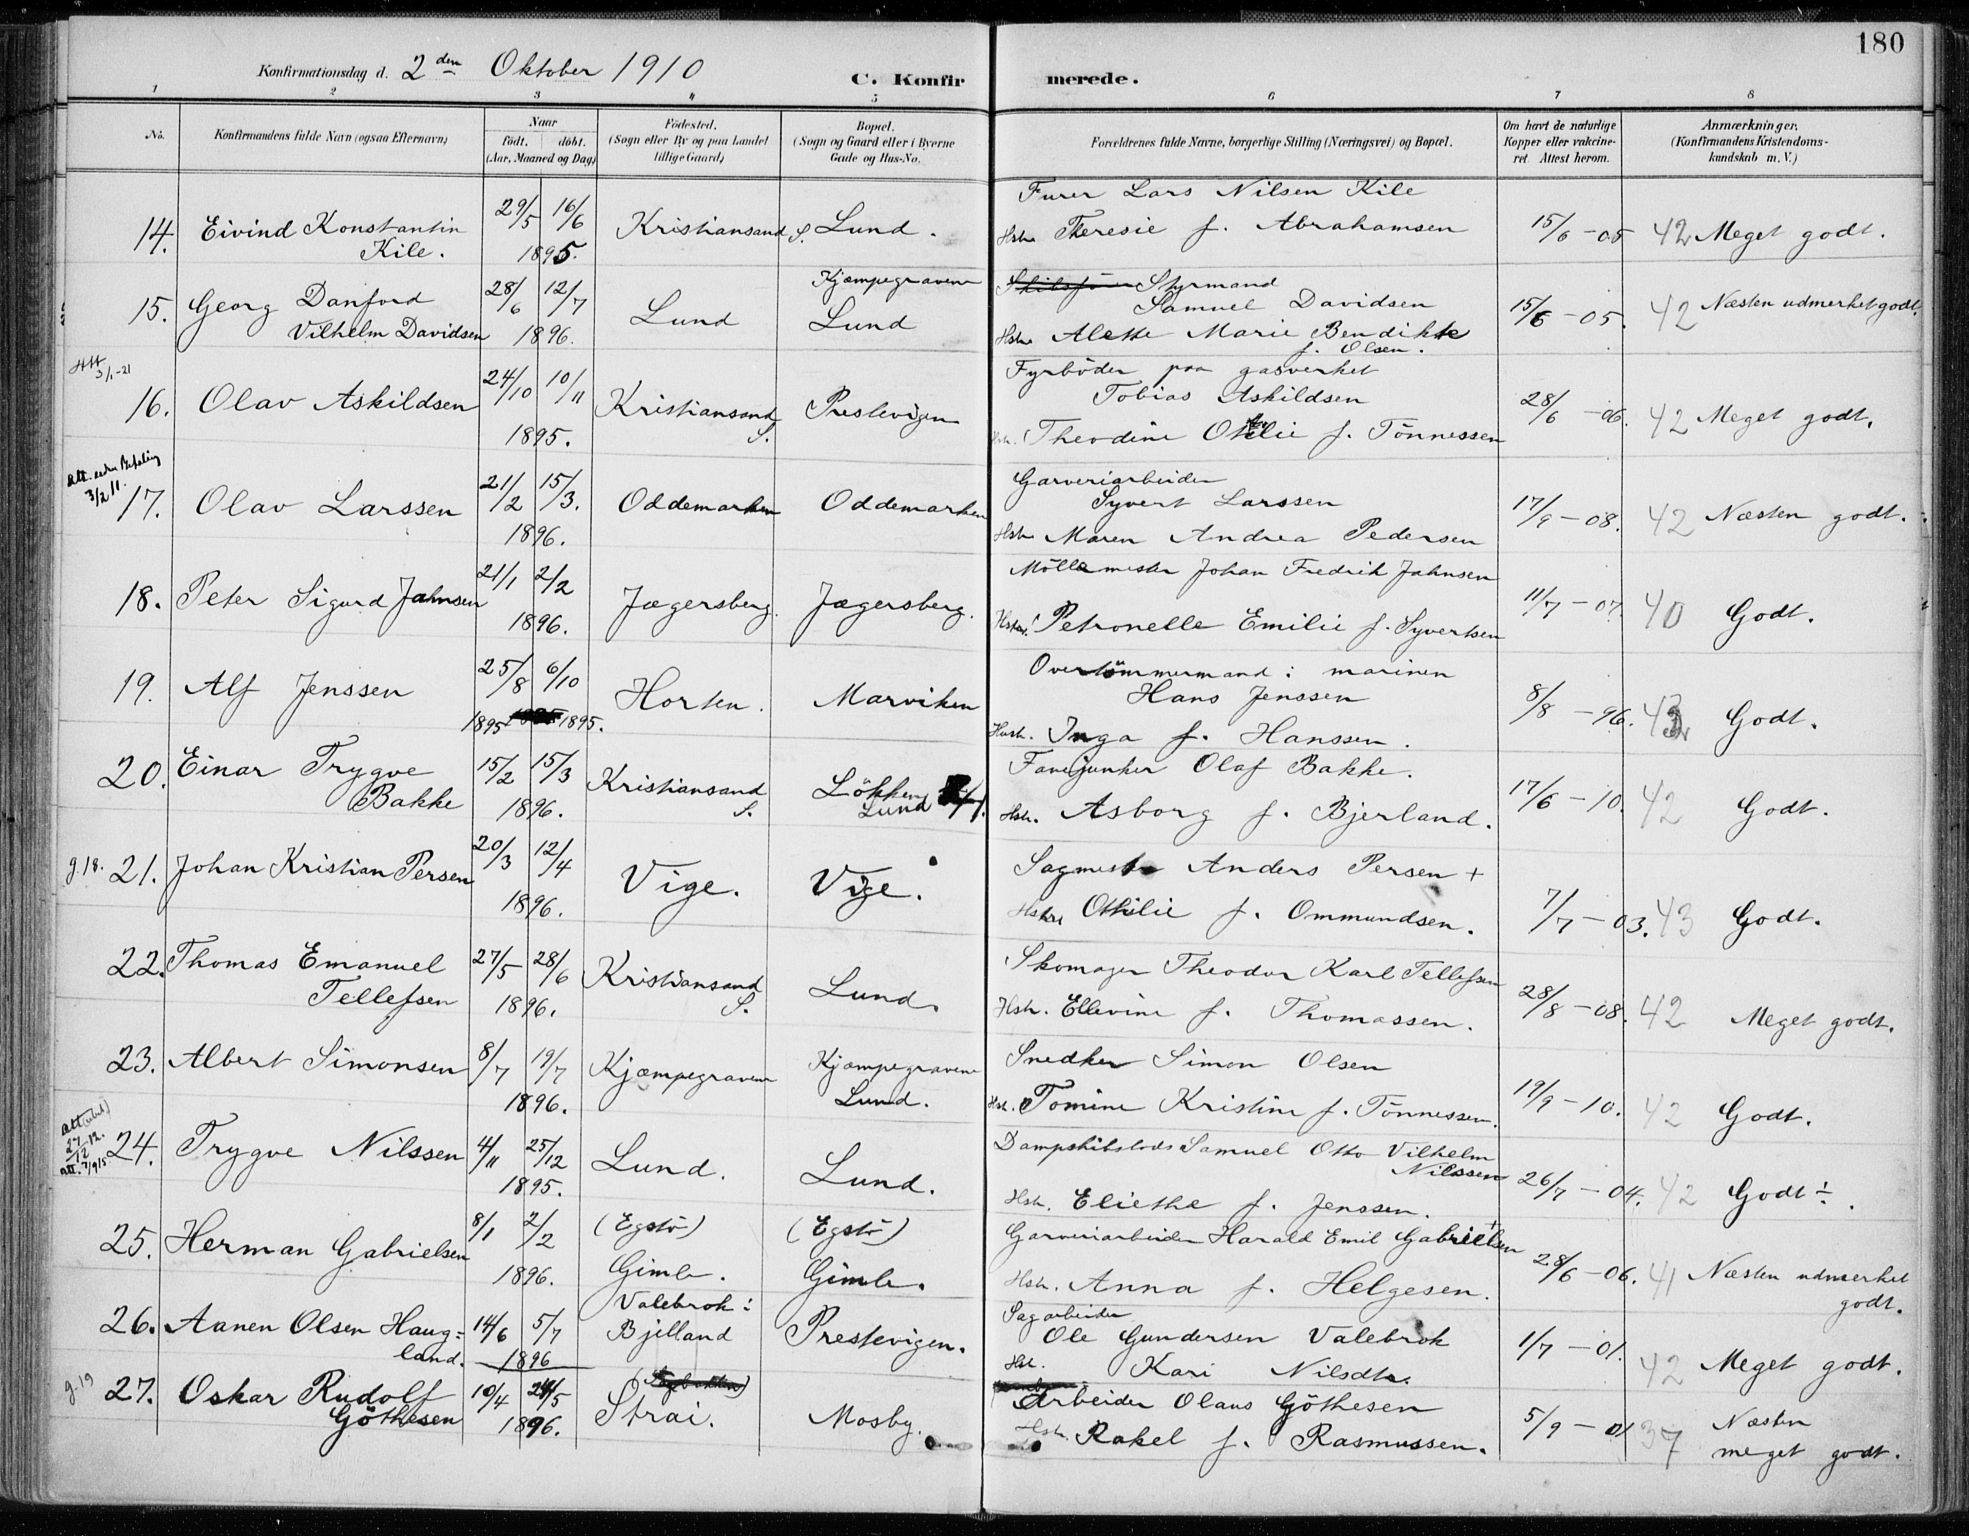 180
Konfirmationsdag d. 2den Oktober 1910
C. Konfirmerede.
1 2 3 4 5 6 7 8
No.
Konfirmandens fulde Navn (ogsaa Efternavn)
Naar
født. døbt.
(Aar, Maaned og Dag)
Födested.
(Sogn eller By og paa Landet
tillige Gaard)
Bopæl.
(Sogn og Gaard eller i Byerne
Gade og Hus-No.
Forældrenes fulde Navne, borgerlige Stilling (Næringsvei) og Bopæl.
Om havt de naturlige
Kopper eller vakcine-
ret Attest herom.
Anmærkninger.
(Konfirmandens Kristendoms-
kundskab m. V.)
14. Eivind Konstantin Kile. 29/5 16/6 1895. Kristiansand S. Lund.
Furer Lars Nilsen Kile
Hstr. Theresie f. Abrahamsen 15/6 - 05 42 Meget godt.
15. Georg Danford Vilhelm Davidsen 28/6 12/7 1896. Lund Kjæmpegravene Lund
Styrmand
Samuel Davidsen
Hstr. Alette Marie Bendikte
f. Olsen. 15/6 - 05. 42 Næsten udmerket godt.
3/1-21
16. Olav Askildsen 24/10 10/11 1895. Kristiansand S. Prestevigen
Fyrböder paa gasverket
Tobias Askildsen
Hstr. Theodine Otilie f. Tönnessen 28/6 - 06. 42 Meget godt.
3/2 11.
17. Olav Larssen 21/2 15/3. 1896. Oddemarken Oddemarken
Garveriarbeider
Syvert Larssen
Hstr. Maren Andrea Pedersen 17/9 - 08. 42 Næsten godt.
18. Peter Sigurd Jahnsen 21/1 2/2 1896. Jægersberg. Jægersberg.
Möllemester Johan Fredrik Jahnsen
Hstr. Petronelle Emilie f. Syvertsen 11/7 - 07. 40 Godt.
19. Alf Jenssen 25/8 6/10 1895 1895. Horten. Marviken
Overtömmermand i marinen
Hans Jenssen
Hustr. Inga f. Hanssen. 8/8 - 96. 43 Godt.
20. Einar Trygve Bakke 15/2 15/3 1896. Kristiansand S. Lökken Lund
Fanejunker Olaf Bakke.
Hstr. Asborg f. Bjerland. 17/6 - 10. 42 Godt.
g. 18.
21. Johan Kristian Persen 20/3 12/4 1896. Vige. Vige.
Sagmester Anders Persen +
Hstr. Othilie f. Ommundsen. 7/7 - 03. 43 Godt.
22. Thomas Emanuel Tellefsen 27/5 28/6 1896. Kristiansand S. Lund.
Skomager Theodor Karl Tellefsen
Hstr. Ellevine f. Thomassen. 28/8 - 08. 42 Meget godt.
23. Albert Simonsen 8/7 19/7 1896. Kjæmpegravene Kjæmpegravene Lund.
Snedker Simon Olsen
Hstr. Tomine Kristine f. Tönnessen. 19/9 - 10. 42 Godt.
27/12 12.
att. 7/9 15
24. Trygve Nilssen 4/11 25/12 1895. Lund. Lund.
Dampskibslods Samuel Otto Vilhelm
Nilssen
Hstr. Eliethe f. Jenssen. 26/7 - 04. 42 Godt ÷.
25. Herman Gabrielsen 8/1 2/2 1896. (Egstö) Gimle. (Egstö) Gimle.
Garveriarbeider Harald Emil Gabrielsen
Hstr. Anna f. Helgesen. 28/6 - 06. 41 Næsten udmerket godt.
26. Aanen Olsen Haug=land. 14/6 5/7 1896 Valebrok i Bjelland Prestevigen.
Sagarbeider
Ole Gundersen Valebrok
Hst. Kari Nilsdtr. 1/7 - 01. 42 Meget godt.
g. 19
27. Oskar Rudolf Göthesen 10/4 24/5 1896. Strai. Mosby.
Arbeider Olaus Göthesen
Hstr. Rakel f. Rasmussen. 5/9 - 01 37 Næsten meget godt.